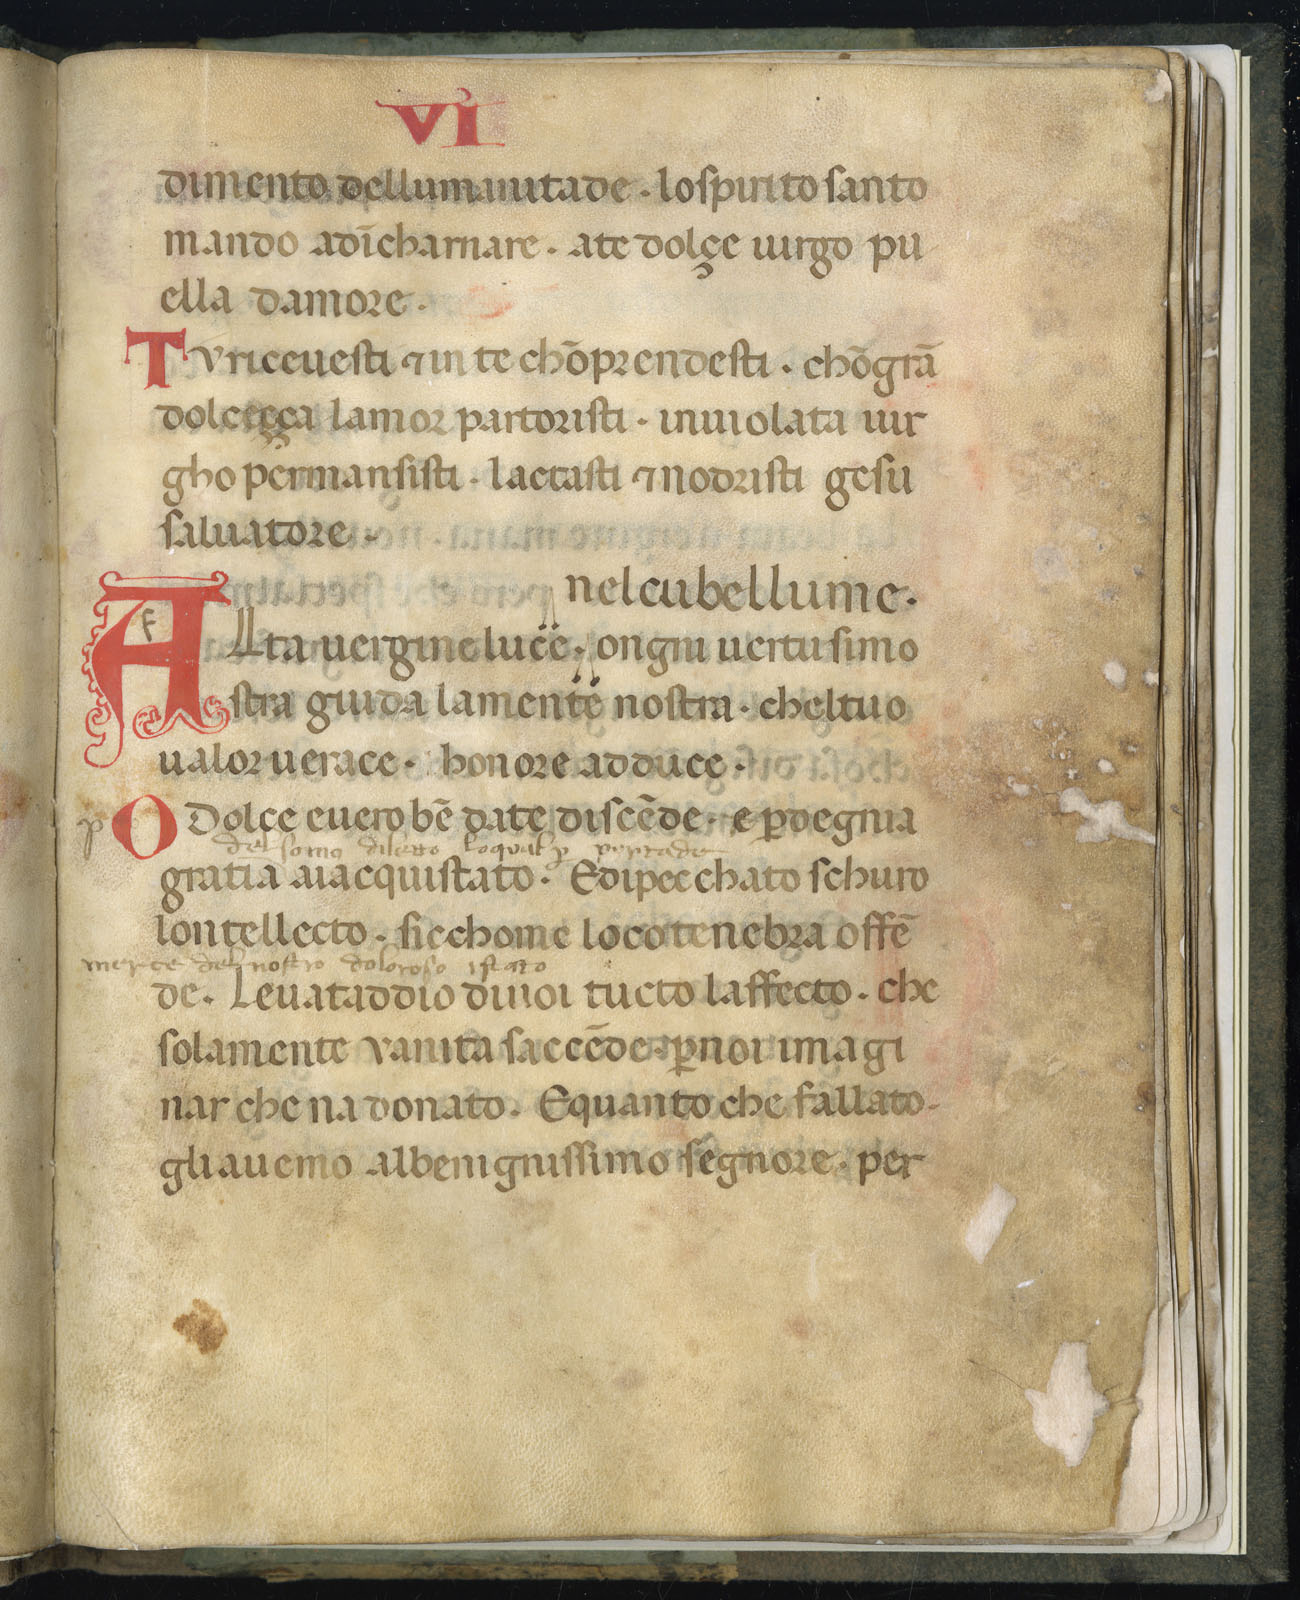 VI
dimento dellumanitade · lospirito santo
mando adīcharnare · ate dolçe uirgo pu
ella damore ·
Tvriceuesti ⁊ in te chōprendesti · chō grā
dolceçça lamor partoristi · inuiolata uir
gho permansisti · lactasti ⁊ nodristi gesu
saluatore ·
nel cui bel lume ·
Alta uergine luce · ongni uertu si mo
stra guida la mente nostra · chel tuo
ualor uerace · honore adduce ·
p O Dolçe euero bē date discēde · e ꝑ degnia
del somo diletto loqual ꝑ pietade
gratia aiacquistato · E di pecchato schuro
lontellecto · sicchome loco tenebra offē
merçe del nostro doloroso istato
de · Leuataddio dinoi tucto laffecto · che
solamente vanita saccēde · ꝑ noi imagi
nar che na donato · E quanto che fallato
gli auemo al benignissimo segnore · per